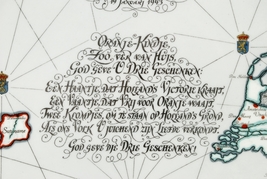 19 Januari 1943
Oranje-Kindje
Zoo ver van Huis,
God geve U Drie Geschenken:
Een Haantje, dat Holland's Victorie kraait,
Een Vaantje, dat Vrij voor Oranje waait,
Twee Klompjes, om te staan op Holland's Grond,
Als ons Volk U juichend zijn Liefde verkondt.
God geve die Drie Geschenken!
Suriname